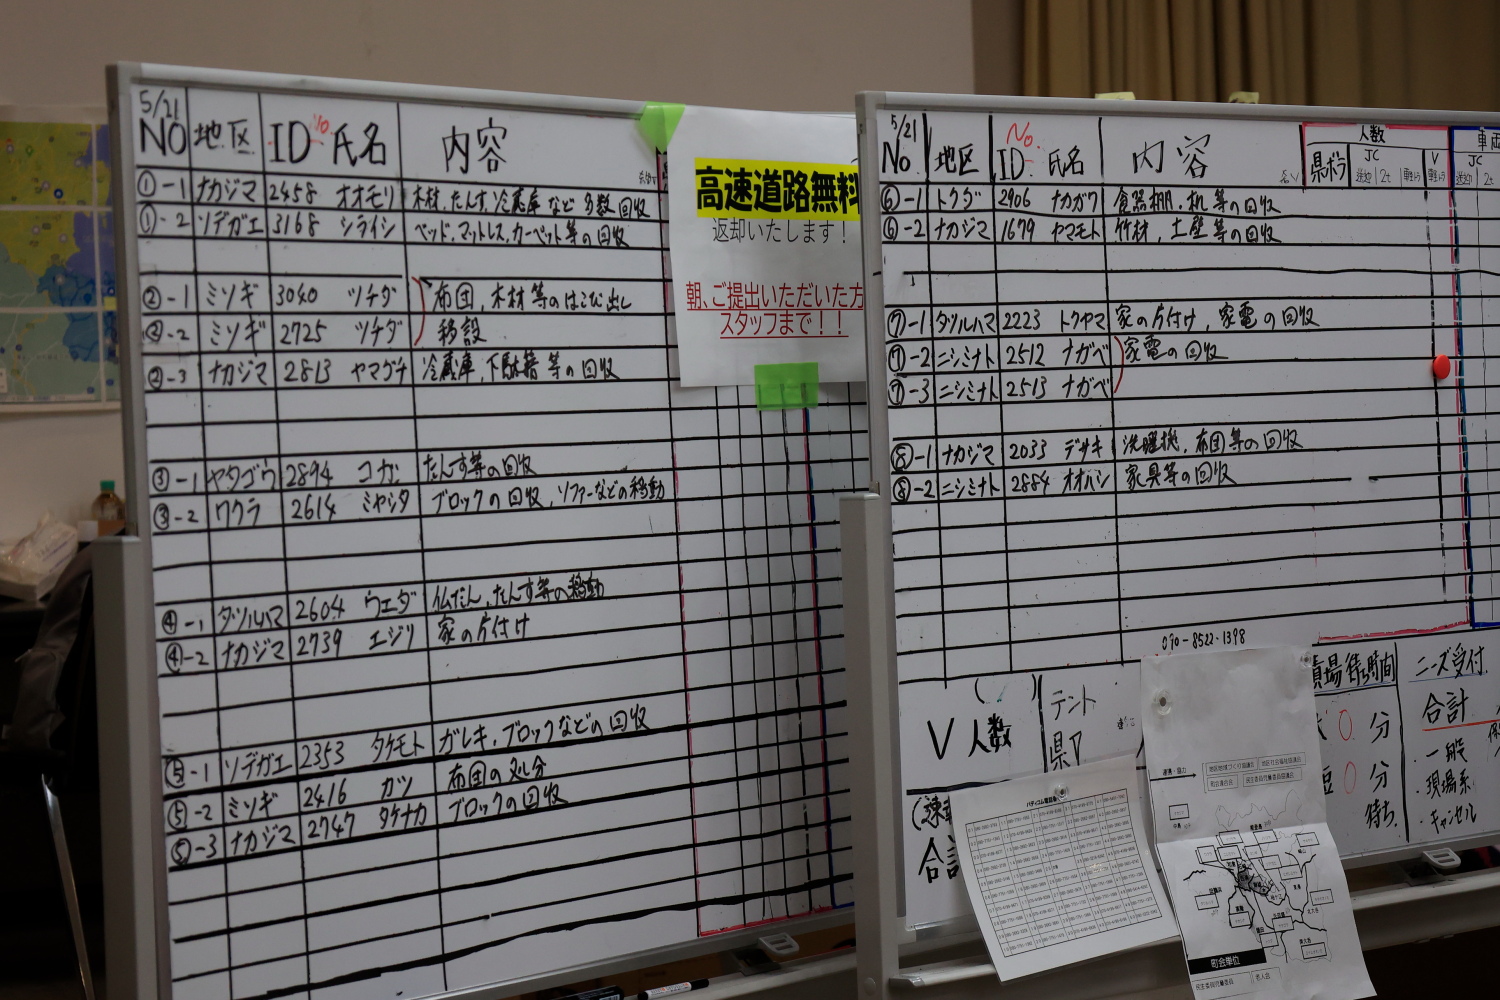 5/21
NO 地区 ID No. 氏名 内容
①-1 ナカジマ 2458 オオモリ 木材、たんす、冷蔵庫など多数回収
①-2 ソデガエ 3168 シライシ ベッド、マットレス、カーペット等の回収
②-1 ミソギ 3040 ツチダ 布団、木材等のはこび出し
②-2 ミソギ 2725 ツチダ 移設
②-3 ナカジマ 2813 ヤマグチ 冷蔵庫、下駄箱等の回収
③-1 ヤタゴウ 2894 コガ たんす等の回収
③-2 ワクラ 2614 ミヤシタ ブロックの回収、ソファーなどの移動
④-1 タツルハマ 2604 ウエダ 仏だん、たんす等の移動
④-2 ナカジマ 2739 エジリ 家の片付け
⑤-1 ソデガエ 2353 タケモト ガレキ、ブロックなどの回収
⑤-2 ミソギ 2416 カツ 布団の処分
⑤-3 ナカジマ 2747 タケナカ ブロックの回収
高速道路無料
返却いたします！
朝、ご提出いただいた方
スタッフまで！！
5/21
No. 地区 No. ID 氏名 内容
人数
県ボラ JC 2t V 軽トラ
車両
JC
⑥-1 トクダ 2906 ナカガワ 食器棚、机等の回収
⑥-2 ナカジマ 1679 ヤマモト 竹材、土壁等の回収
⑦-1 タツルハマ 2223 トクヤマ 家の片付け、家電の回収
⑦-2 ニシミナト 2512 ナガベ 家電の回収
⑦-3 ニシミナト 2513 ナガベ
⑧-1 ナカジマ 2033 デサキ 洗曜機、布団等の回収
⑧-2 ニシミナト 2884 オオハシ 家具等の回収
090-8522-1398
V人数
テント
合計
場待ち時間
0 分
0 分
待ち
ニーズ受付
合計
・一般
・現場系
・キャンセル
町会単位